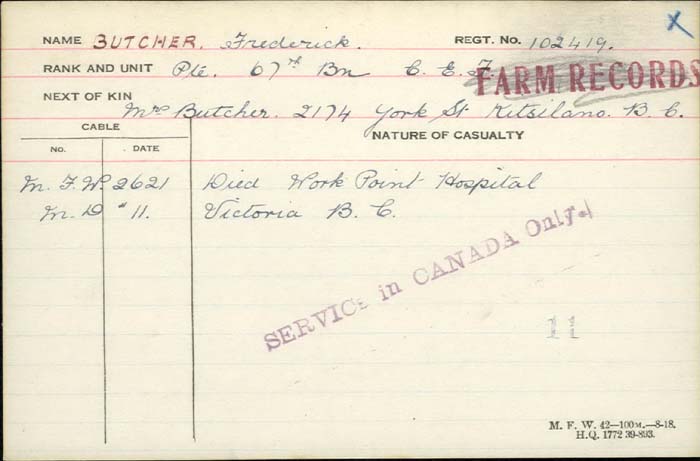 x
NAME BUTCHER, Frederick. REGT. No. 102419.
RANK AND UNIT Pte. 67th Bn C. E. F.
FARM RECORDS
NEXT OF KIN Mrs Butcher. 2174 York St. Kitsilano. B. C.
CABLE NATURE OF CASUALTY
No. DATE
M. F. W. 2621 Died Work Point Hospital
M. D "11. Victoria B. C.
SERVICE in CANADA Only.
11
M. F. W. 42—100M.—8-18.
H.Q. 1772 39-893.